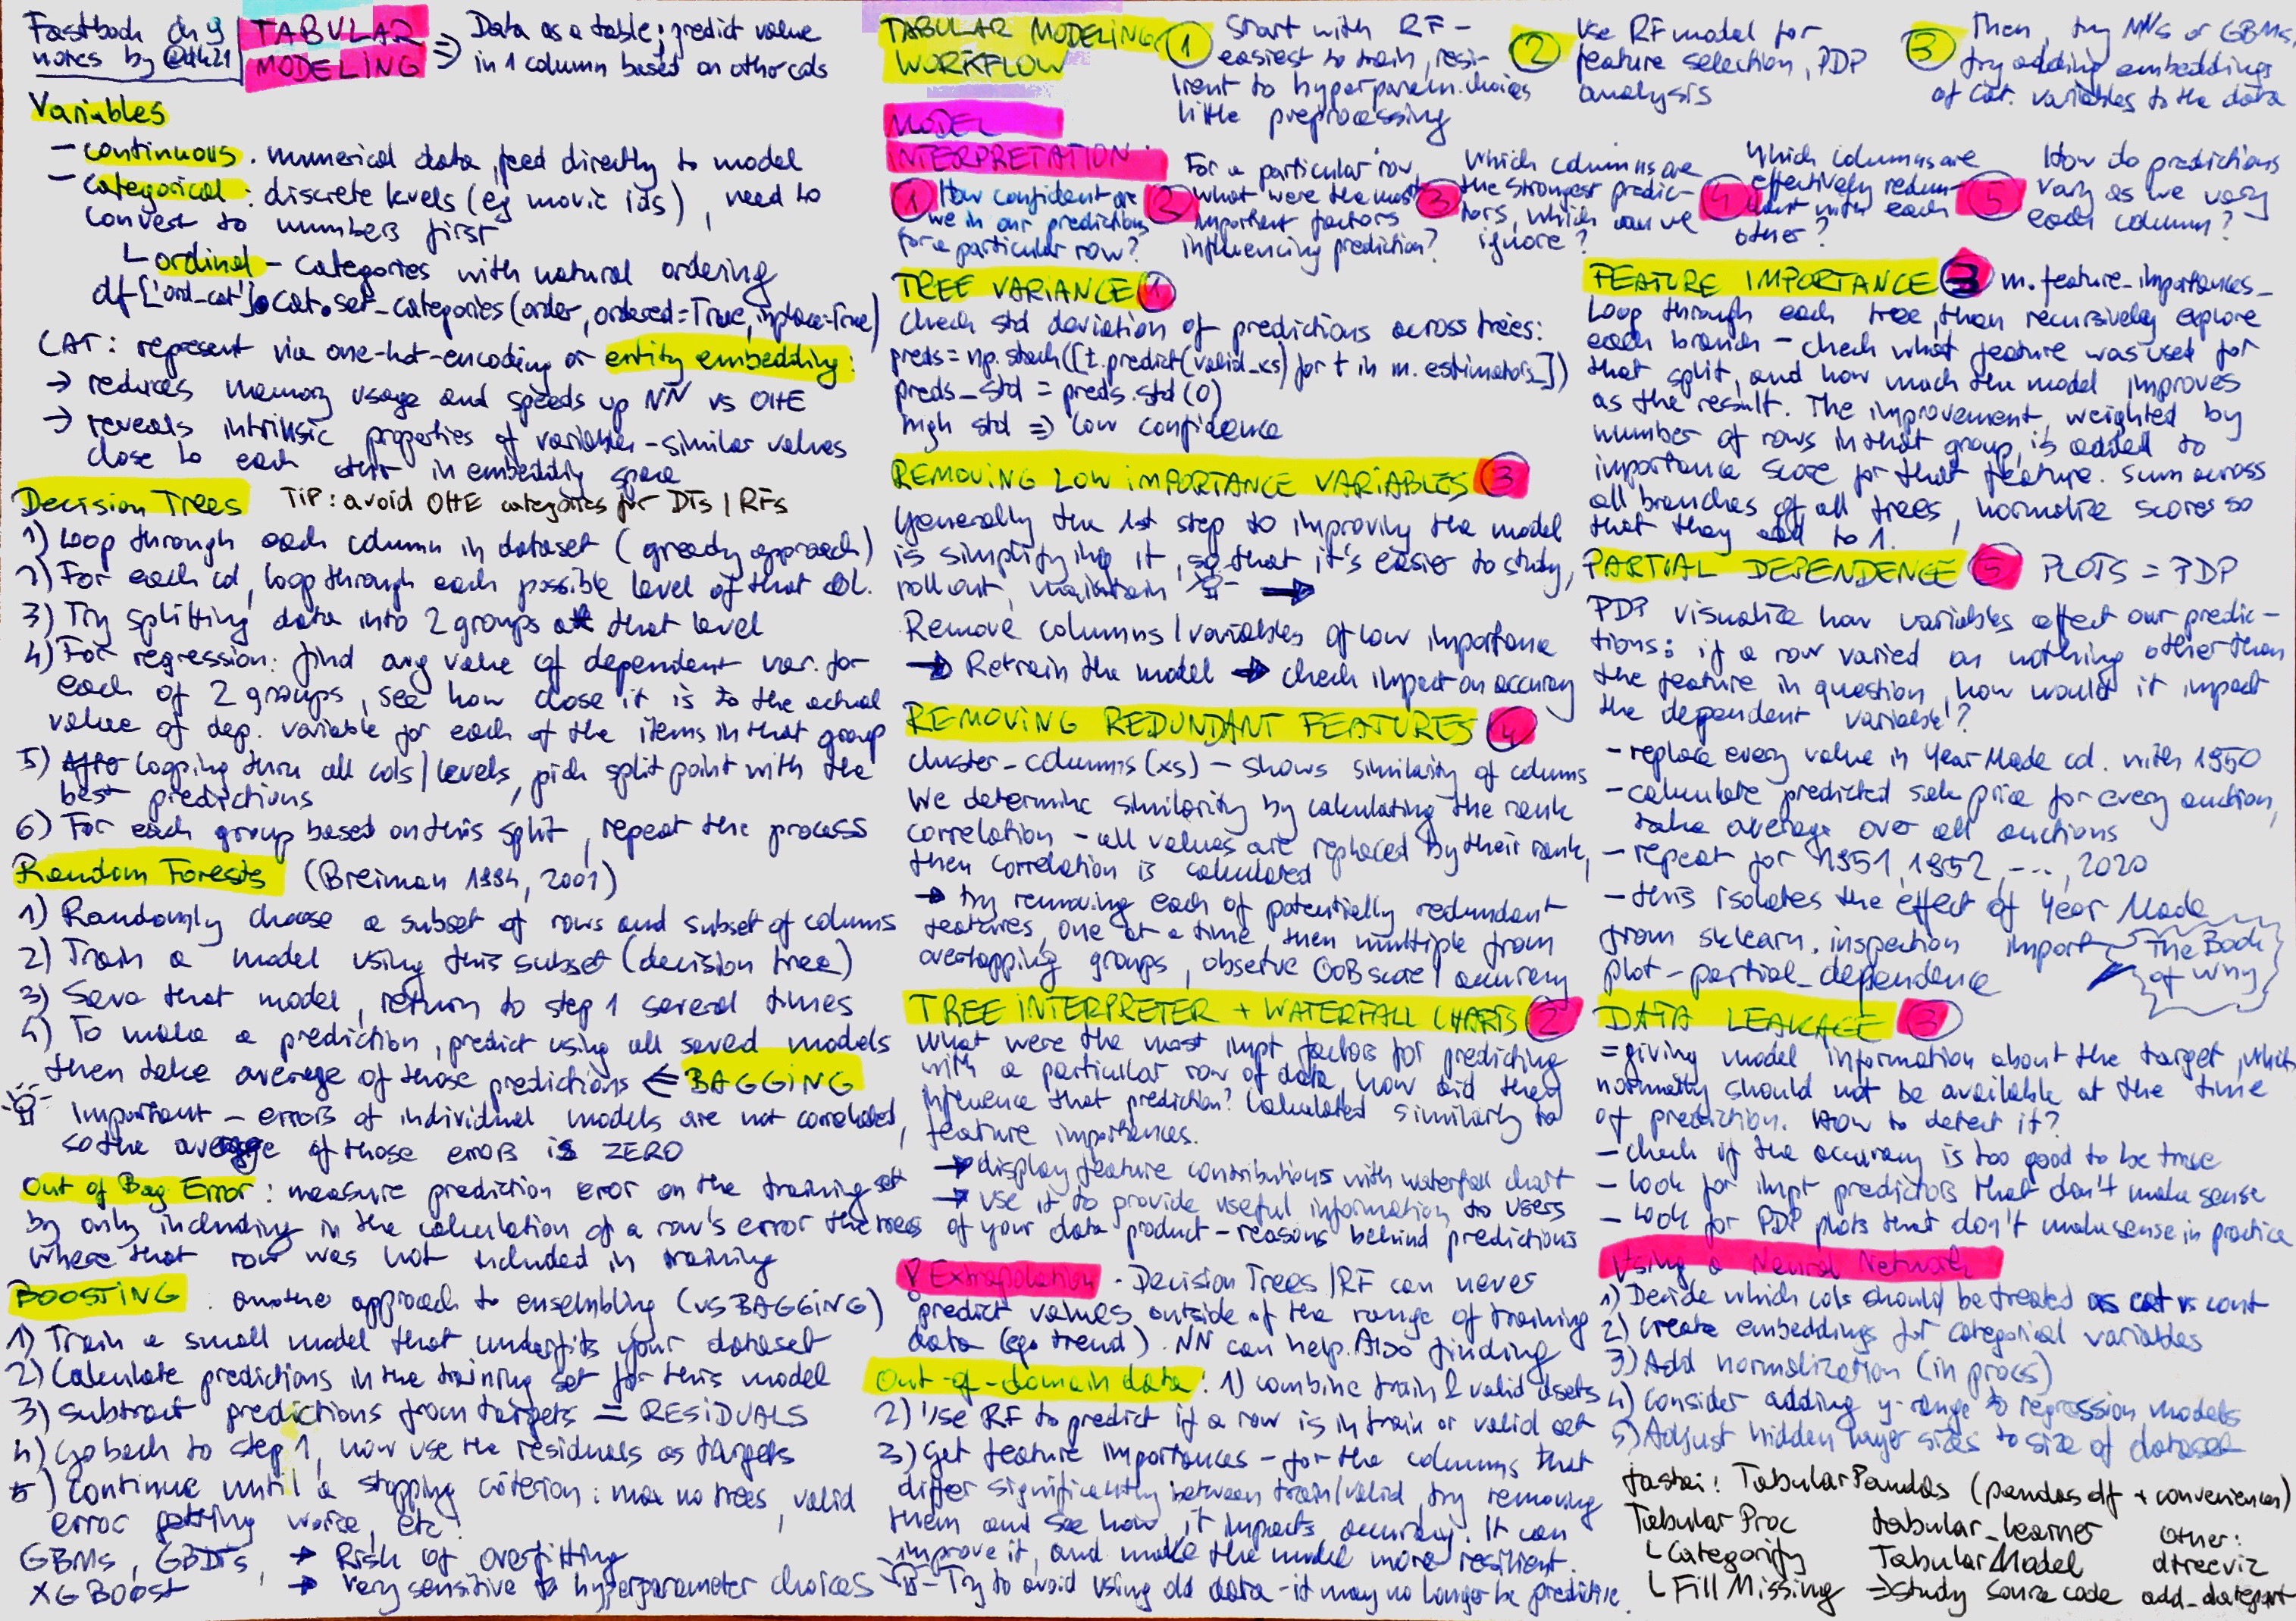 Fastbook ch 9
notes by @dk21
TABULAR
MODELING
⇒ Data as a table; predict value
in 1 column based on other cols
Variables
- continuous. numerical data, feed directly to model
- categorical: discrete levels (eg movie ids), need to
convert to numbers first
└ ordinal - categories with natural ordering
df['ord_cat'].cat.set_categories(order, ordered=True, inplace=True)
CAT: represent via one-hot-encoding or entity embedding:
→ reduces memory usage and speeds up NN vs OHE
→ reveals intrinsic properties of variables - similar values
close to each other in embedding space
Decision Trees TIP: avoid OHE categories for DTs / RFs
1) Loop through each column in dataset (greedy approach)
2) For each col, loop through each possible level of that col.
3) Try splitting data into 2 groups at that level
4) For regression: find avg value of dependent var. for
each of 2 groups, see how close it is to the actual
value of dep. variable for each of the items in that group
5) After looping thru all cols/levels, pick split point with the
best predictions
6) For each group based on this split, repeat the process
Random Forests (Breiman 1994, 2001)
1) Randomly choose a subset of rows and subset of colums
2) Train a model using this subset (decision tree)
3) Save that model, return to step 1 several times
4) To make a prediction, predict using all saved models
then take average of those predictions ⇐ BAGGING
Important - errors of individual models are not correlated,
so the average of those errors is ZERO
Out of Bag Error: measure prediction error on the training set
by only including in the calculation of a row's error the trees
where that row was not included in training
BOOSTING. another approach to ensembling (vs BAGGING)
1) Train a small model that underfits your dataset
2) Calculate predictions in the training set for this model
3) Subtract predictions from targets = RESIDUALS
4) Go back to step 1, now use the residuals as targets
5) Continue until a stopping criterion: max no trees, valid
error getting worse, etc.
GBMs, GBDTs, → Risk of overfitting
XGBoost → very sensitive to hyperparameter choices
TABULAR MODELING
WORKFLOW
① Start with RF -
easiest to train, resi-
lient to hyperparam. choices
little preprocessing
② Use RF model for
feature selection, PDP
analysis
③ Then, try NNs or GBMs,
try adding embeddings
of cat. variables to the data
MODEL
INTERPRETATION:
① How confident are
we in our predictions
for a particular row?
② For a particular row
what were the most
important factors
influencing prediction?
③ Which columns are
the strongest predic-
tors, which can we
ignore?
④ Which columns are
effectively redun-
dant with each
other?
⑤ How do predictions
vary as we vary
each column?
TREE VARIANCE ①
Check std deviation of predictions across trees:
preds = np.stack([t.predict(valid_xs) for t in m.estimators_])
preds_std = preds.std(0)
high std ⇒ low confidence
REMOVING LOW IMPORTANCE VARIABLES ③
Generally the 1st step to improving the model
is simplifying it, so that it's easier to study,
rollout, maintain →
Remove columns/variables of low importance
→ Retrain the model → check impact on accuracy
REMOVING REDUNDANT FEATURES ④
cluster_columns(xs) - shows similarity of colums
We determine similarity by calculating the rank
correlation - all values are replaced by their rank,
then correlation is calculated
→ try removing each of potentially redundant
features, one at a time, then multiple from
overlapping groups, observe OOB score / accuracy
TREE INTERPRETER + WATERFALL CHARTS ②
What were the most impt factors for predicting
with a particular row of data, how did they
influence that prediction? Calculated similarly to
feature importances.
→ display feature contributions with waterfall chart
→ use it to provide useful information to users
of your data product - reasons behind predictions
! Extrapolation - Decision Trees / RF can never
predict values outside of the range of training
data (eg. trend). NN can help. Also finding
Out-of-domain data: 1) combine train & valid dsets
2) Use RF to predict if a row is in train or valid set
3) Get feature importances - for the columns that
differ significantly between train/valid, try removing
them and see how it impacts accuracy. It can
improve it, and make the model more resilient.
- Try to avoid using old data - it may no longer be predictive.
FEATURE IMPORTANCE ③ m.feature_importances_
Loop through each tree, then recursively explore
each branch - check what feature was used for
that split, and how much the model improves
as the result. The improvement, weighted by
number of rows in that group, is added to
importance score for that feature. Sum across
all branches of all trees, normalize scores so
that they add to 1.
PARTIAL DEPENDENCE ⑤ PLOTS = PDP
PDP visualize how variables affect our predic-
tions: if a row varied on nothing other than
the feature in question, how would it impact
the dependent variable?
- replace every value in Year Made col. with 1950
- calculate predicted sale price for every auction,
take average over all auctions
- repeat for 1951, 1952, ..., 2020
- this isolates the effect of Year Made
from sklearn.inspection import
plot_partial_dependence
The Book
of Why
DATA LEAKAGE ③
= giving model information about the target, which
normally should not be available at the time
of prediction. How to detect it?
- check if the accuracy is too good to be true
- look for impt predictors that don't make sense
- look for PDP plots that don't make sense in practice
Using a Neural Network
1) Decide which cols should be treated as cat vs cont
2) Create embeddings for categorical variables
3) Add normalization (in procs)
4) Consider adding y-range to regression models
5) Adjust hidden layer sizes to size of dataset
fastai: TabularPandas (pandas df + conveniences)
Tabular Proc
└ Categorify
└ Fill Missing
tabular_learner
TabularModel
→ Study source code
Other:
dtreeviz
add_datepart